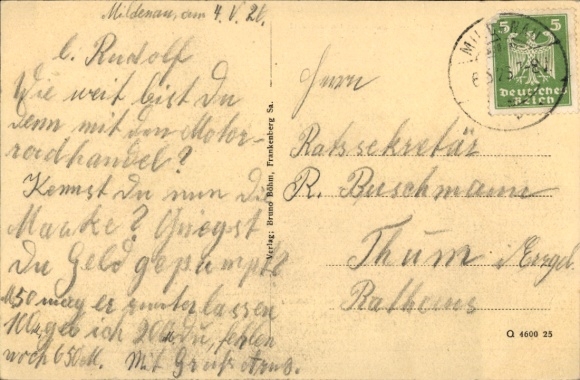 Mildenau, am 4. V. 26.
l. Rudolf
Wie weit bist Du
denn mit den Motor-
radhandel?
Kennst Du nun die
Marke? Griegst
Du Geld gepumpt?
M50 mag er runterlassen
100 geb ich 200 Du, fehlen
noch 650 M. Mit Gruß Arno.
Verlag: Bruno Böhm, Frankenberg Sa.
5 5
Deutsches
Reich
Herrn
Ratssekretär
R. Buschmann
Thum i/Erzgeb.
Rathaus
Q 4600 25